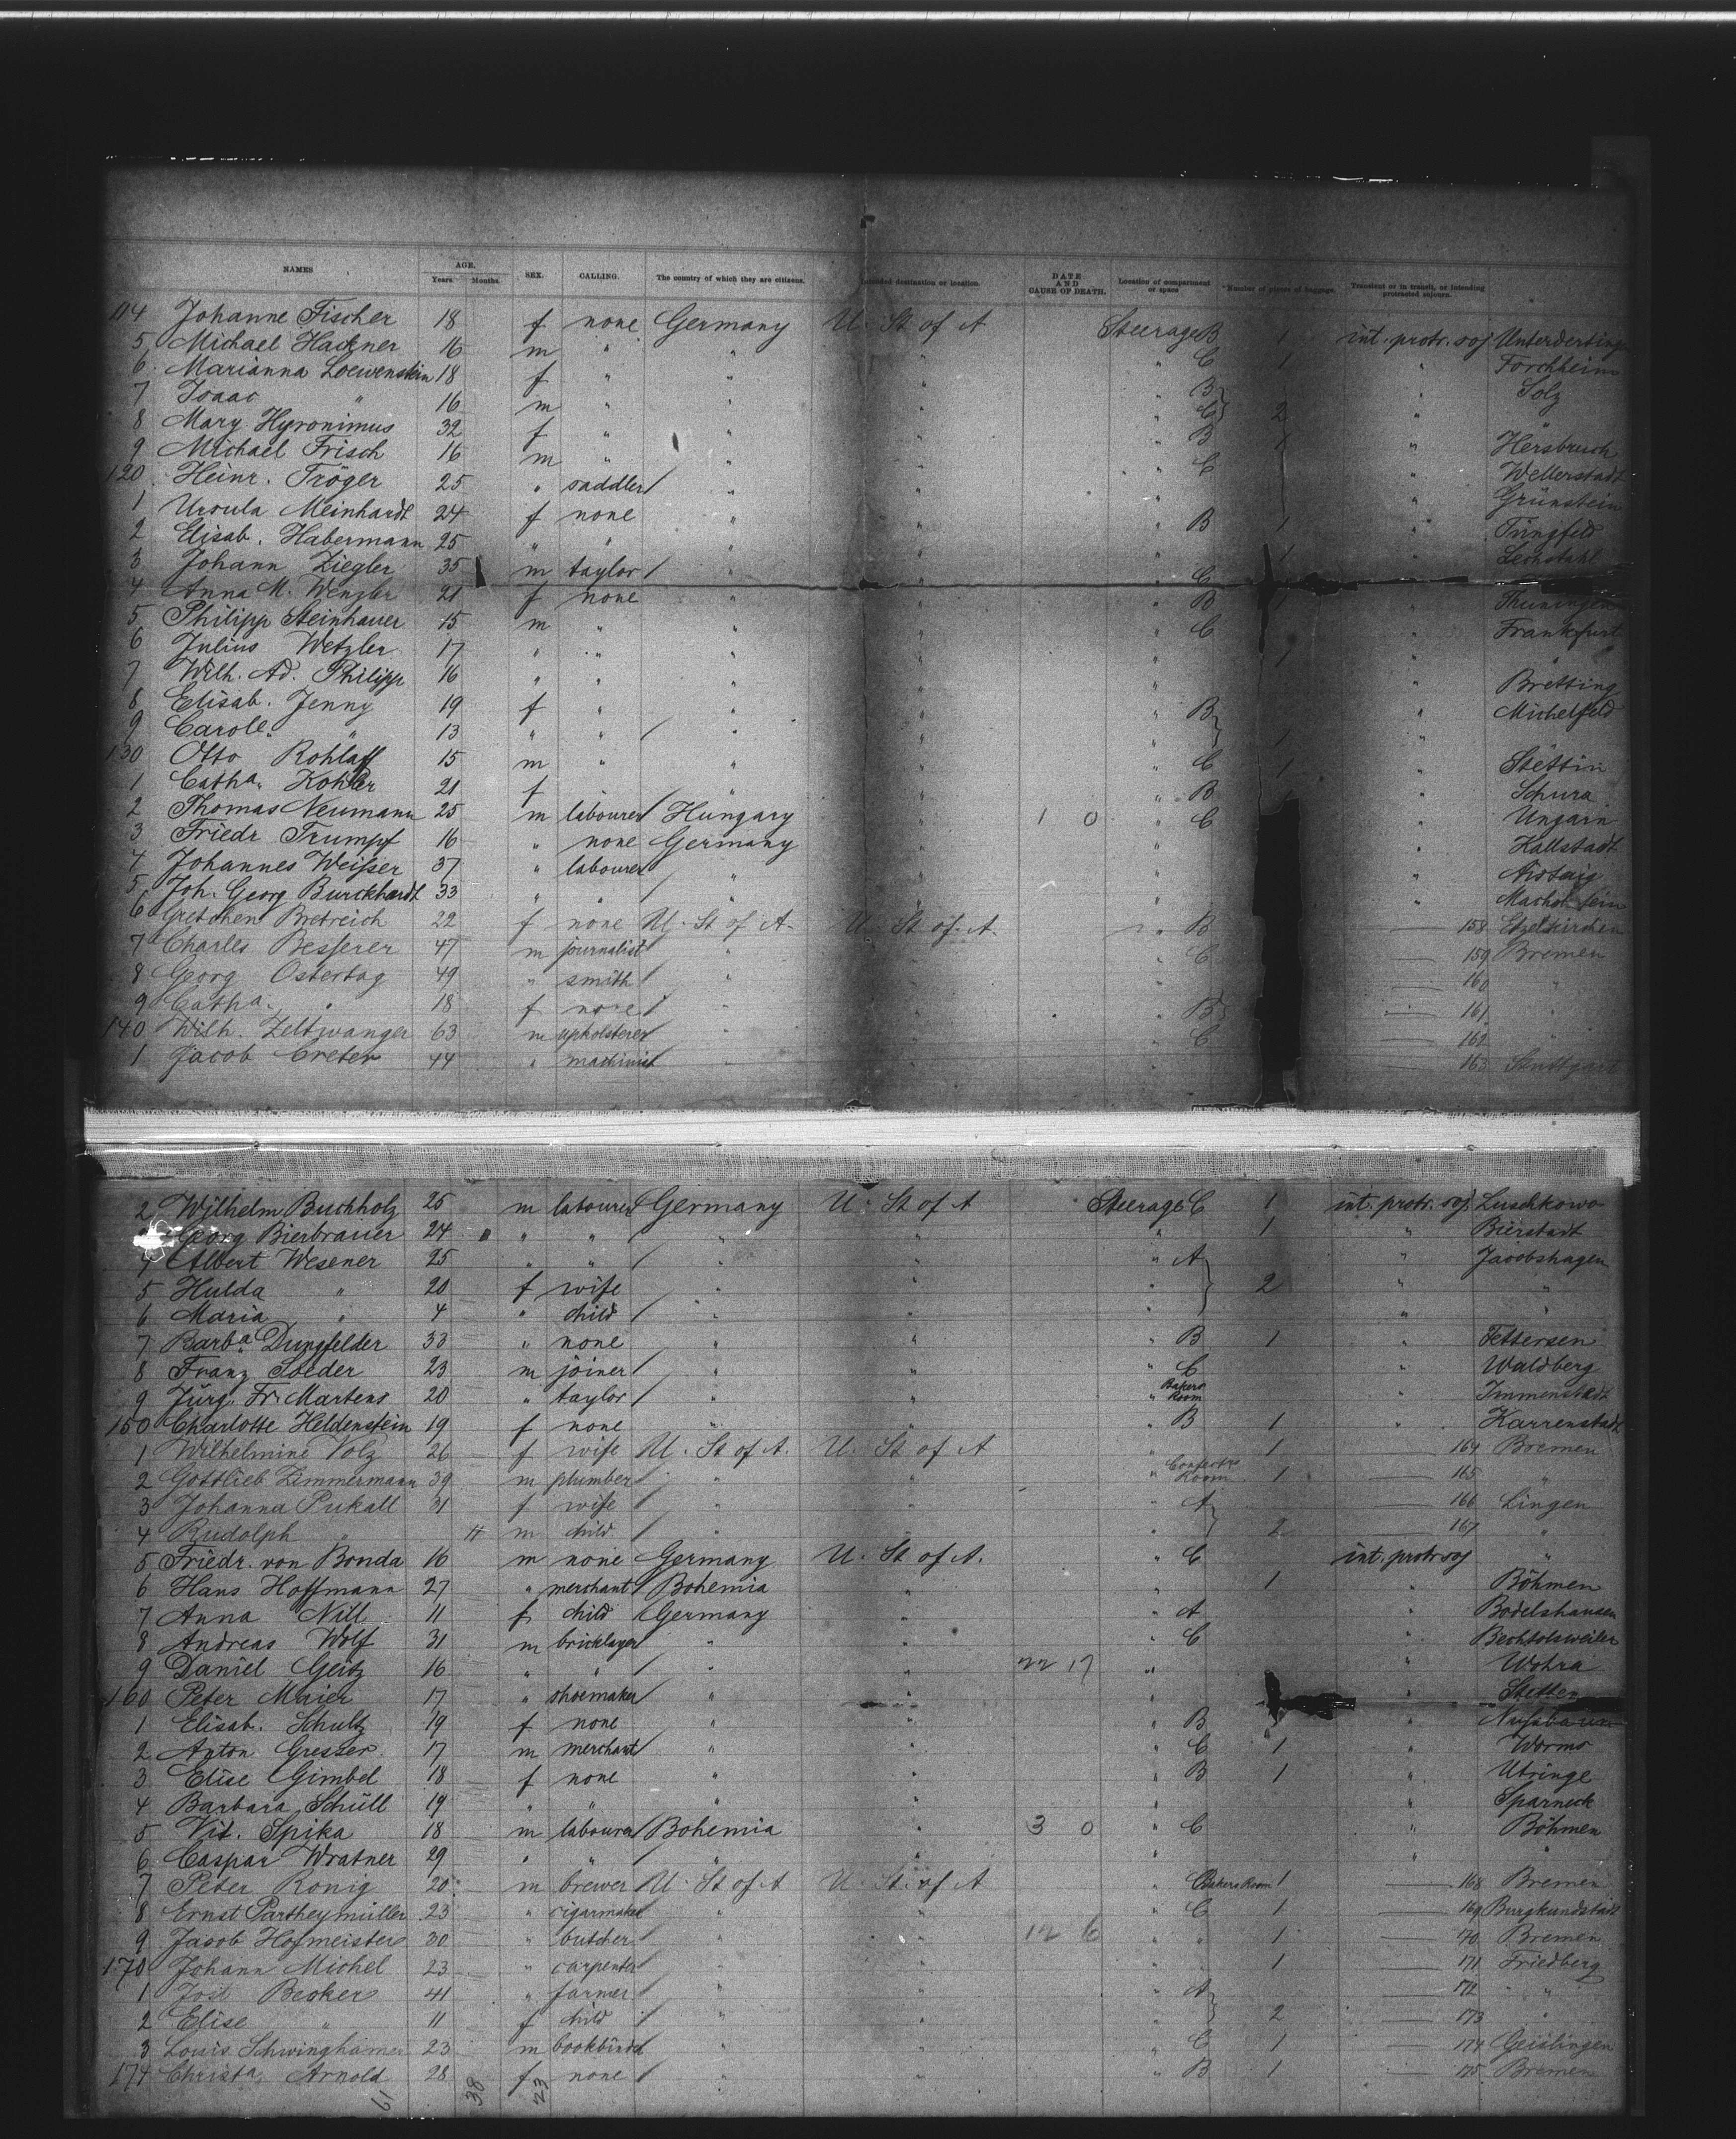 NAMES AGE. Years. Months. SEX. CALLING. The country of which they are citizens. Intended destination or location. DATE AND CAUSE OF DEATH. Location of compartment or space Number of pieces of baggage. Transient or in transit, or intending protracted sojourn.
114 Johanne Fischer 18 f none Germany U. St of A Steerage B 1 int. protr. soj
5 Michael Hackner 16 m " " " " C 1 " Forchheim
6 Marianna Loewenstein 18 f " " " " B " Solz
7 Isaac " 16 m " " " " C 2 " "
8 Mary Hyronimus 32 f " " " " B 1 " Hersbruch
9 Michael Frisch 16 m " " " " C " Wellerstadt
120 Heinr. Tröger 25 " saddler " " " " Grünstein
1 Ursula Meinhardt 24 f none " " " B 1 "
2 Elisab. Habermann 25 " " " " " 1 "
3 Johann Ziegler 35 m taylor " " " C
4 Anna M. Wenzler 21 f none " " " B 1 " Thuningen
5 Philipp Steinhauer 15 m " " " " C " Frankfurt
6 Julius Wetzler 17 " " " " " 1 " "
7 Wilh. Ad. Philipp 16 " " " " " " Bretting
8 Elisab. Jenny 19 f " " " " B " Michelfeld
9 Carole. " 13 " " " " " 1 "
130 Otto Rohlaff 15 m " " " " C 1 " Stettin
1 Catha. Kohler 21 f " " " " B " Schura
2 Thomas Neumann 25 m labourer Hungary " 1 0 " C " Ungarn
3 Friedr Trumpf 16 " none Germany " " " Kallstadt
4 Johannes Weißer 37 " labourer " " " "
5 Joh. Georg Burckhardt 33 " " " " " "
6 Gretchen Bretreich 22 f none U. St of A. U. St of A. " B 158 Etzelskirchen
7 Charles Besserer 47 m journalist " " " C 159 Bremen
8 Georg Ostertag 49 " smith " " 160 "
9 Catha. " 18 f none " " " B 161 "
140 Wilh. Zeltwanger 63 m upholsterer " " " C 162 "
1 Jacob Creter 44 " machinist " " 163 Stuttgart
2 Wilhelm Buchholz 25 m labourer Germany U. St of A Steerage C 1 int. protr. soj. Luschkowo
Georg Bierbrauer 24 " " " " " 1 " Bierstadt
4 Albert Wesener 25 " " " " " A " Jacobshagen
5 Hulda " 20 f wife " " " 2 " "
6 Maria " 4 " child " " " " "
7 Barba. Dungfelder 33 " none " " " B 1 " Tettersen
8 Franz Soeder 23 m joiner " " " C " Waldberg
9 Jürg. Fr. Martens 20 " taylor " " " Bakers Room " Immenstedt
150 Charlotte Heldenstein 19 f none " " " B 1 " Karrenstadt
1 Wilhelmine Volz 26 f wife U. St of A. U. St of A " 1 164 Bremen
2 Gottlieb Zimmermann 39 m plumber " " " Room 1 165 "
3 Johanna Pukall 31 f wife " " " A 166 Lingen
4 Rudolph " 11 m child " " " 2 167 "
5 Friedr. von Bonda 16 m none Germany U. St of A. " C int. protr soj "
6 Hans Hoffmann 27 " merchant Bohemia " " 1 " Böhmen
7 Anna Nill 11 f child Germany " " A " Bodelshausen
8 Andreas Wolf 31 m bricklayer " " " C " Bechtolsweiler
9 Daniel Geitz 16 " " " 22 17 " " Wohra
160 Peter Maier 17 " shoemaker " " " " Stetten
1 Elisab. Schultz 19 f none " " " B " Nussbaum
2 Anton Gresser 17 m merchant " " " C 1 " Worms
3 Elise Gimbel 18 f none " " " B 1 " Utringe
4 Barbara Schüll 19 " " " " " " Sparneck
5 Vit. Spika 18 m labourer Bohemia " 3 0 " C " Böhmen
6 Caspar Wratner 29 " " " " " " "
7 Peter König 20 m brewer U. St of A U. St. of A " Bakers Room 1 168 Bremen
8 Ernst Partheymüller 23 " cigarmaker " " " C 1 169 Burgkundstadt
9 Jacob Hofmeister 30 " butcher " " 12 6 " " 1 70 Bremen
170 Johann Michel 23 " carpenter " " " " 1 171 Friedberg
1 Jost Becker 41 " farmer " " " A 172 "
2 Elise " 11 f child " " " 2 173 "
3 Louis Schwinghamer 23 m bookbinder " " " C 1 174 Geislingen
174 Christa. Arnold 28 f none " " " B 1 175 Bremen
61 38 23